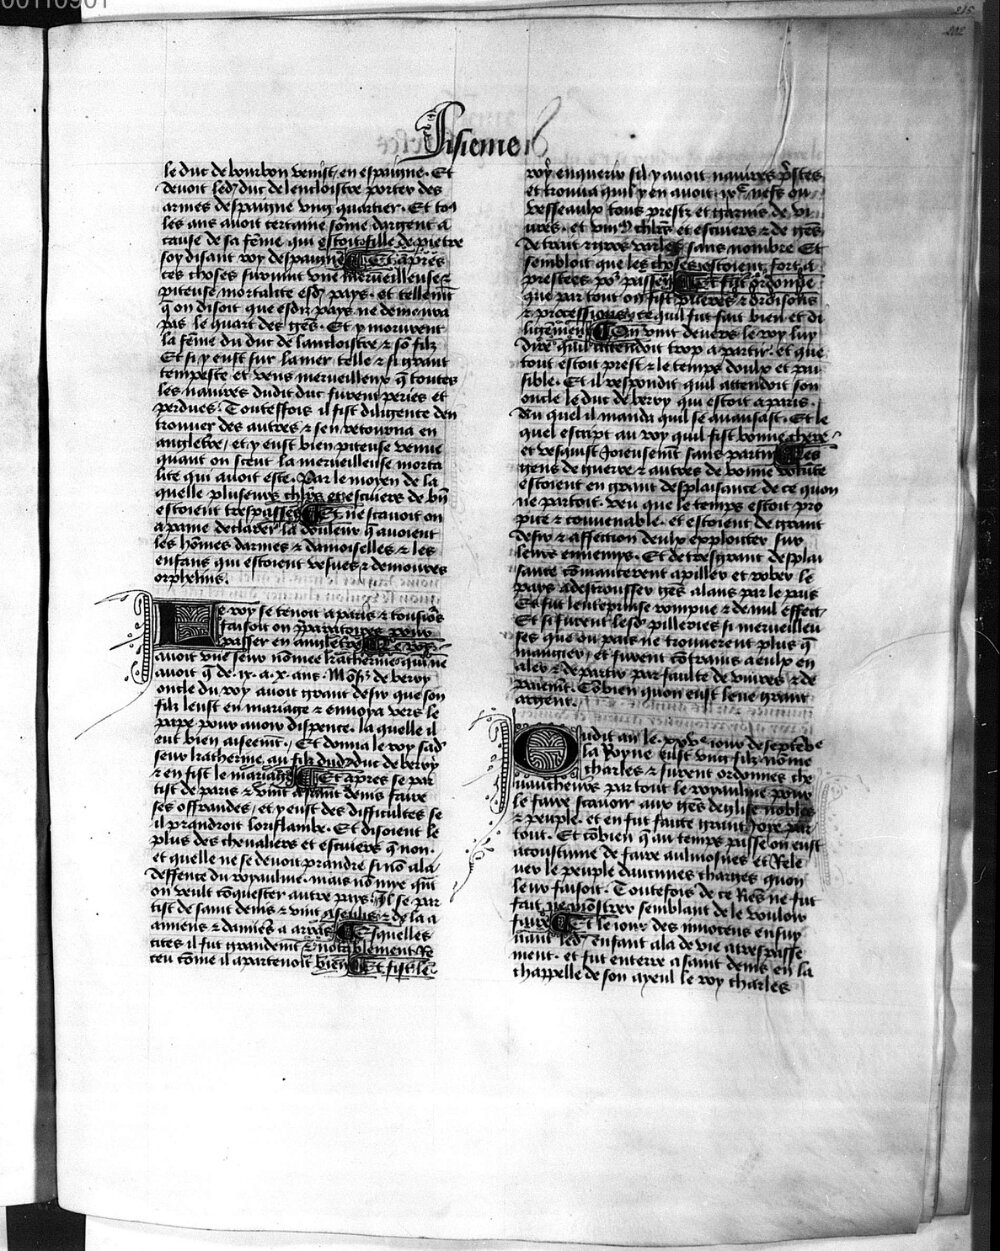 00110901
215
202
Sisieme
le duc de bourbon venist en espaigne. Et
devoit led duc de lencloistre porter des
armes despaigne ung quartier. Et to9
les ans avoit certaine sōme dargent a
cause de sa fēme qui estoit fille de pietre
soy disant roy despaigne Et apres
ces choses survint une merveilleuse &
piteuse mortalite esd pays. et tellemēt
q̄ on disoit que esdis pays ne demoura
pas le quart des gēs. Et y mourirent
la fēme du duc de lancloistre & sō filz
Et si y eust sur la mer telle & si grant
tempeste et vens merveilleux q̄ toutes
les navires dudit duc furent peries et
perdues. Toutesfois il fist diligence den
trouver des autres & sen retourna en
anglet're, et y eust bien piteuse venue
quant on sceut la merveilleuse morta
lite qui avoit este. Par le moyen de la
quelle plusieurs chlrs et escuiers de bn̄
estoient trespasses Et ne scavoit on
a paine declarer la douleur q̄ avoient
les hōmes darmes & damoiselles & les
enfans qui estoient vesves & demoures
orphelins.
Le roy se tenoit a paris & tousiōs
faisoit on p̄paratoires pour
passer en anglet're Le roy
avoit une seur nōmee katherine qui ne
avoit q̄ de .ix. a .x. ans. Mōs de berry
oncle du roy avoit grant desir que son
filz leust en mariage & envoya vers le
pape pour avoir dispence. la quelle il
eut bien aiseemēt. Et donna le roy sad
seur katherine au filz dud duc de berry
& en fist le mariage Et apres se par
tist de paris & vint a saint denis faire
ses offrandes, et y eust des difficultes se
il prandroit loriflambe. Et disoient le
plus des chevaliers et escuiers q̄ non.
et quelle ne se devoit prandre si nō a la
deffence du royaulme. mais nō mye quāt
on veult cōquester autre pays. Il se par
tist de saint denis & vint a senlis & de la a
amiens & damiēs a arras Es quelles
cites il fut grandemēt & notablement Re
ceu cōme il apartenoit bien Et fist le
roy enquerir sil y avoit navires p̄stes
et trouva quil y en avoit .ix.c nefs ou
vesseaulx tous prestz et garnis de vi
vres. et viii.m chlrs et escuiers & de gēs
de trait & gros varles sans nombre Et
sembloit que les choses estoient fort a
prestees po' passer Et fist ordonne
que par tout on fist prieres & oroisons
& processions, ce qui fut fait bien et di
ligēment On vint devers le roy luy
dire quil attendoit trop a partir. et que
tout estoit prest & le temps doulx et pai
sible. Et il respondit quil attendoit son
oncle le duc de berry qui estoit a paris.
Au quel il manda quil se avansast. Et le
quel escript au roy quil fist bonne chere
et vesquist joieusemēt sans partir Les
gens de guerre & autres de bonne volūte
estoient en grant desplaisance de ce quon
ne partoit. veu que le temps estoit pro
pice & convenable. et estoient de grant
desir & affection deulx exploicter sur
leurs ennemys. Et de tresgrant desplai
sance cōmancerent a piller et rober le
pays & destrousser gēs alans par le païs
Et fut lentreprinse rompue & de nul effect
Et si furent lesd pilleries si merveilleu
ses que ou païs ne trouverent plus q̄
mangier, et furent cōtrains a eulx en
aler & departir par faulte de vivres & de
paiemēt. Cōbien quon eust leve grant
argent.
Oudit an le .xxv.e iour de septēbre
la Royne eust ung filz nōme
charles & furent ordonnes che
vaucheurs par tout le royaulme pour
le faire scavoir aux gēs deglise nobles
& peuple. et en fut faicte grant joye par
tout. Et cōbien q̄ au temps passe on eust
acoustume de faire aulmosnes et Rele
ver le peuple daucunes charges quon
leur faisoit. Toutefois de ce Riēs ne fut
fait ne mōstrer semblant de le vouloir
faire Et le iour des innocens ensui
vant led enfant ala de vie a trespasse
ment. et fut enterre a saint denis en la
chappelle de son ayeul le roy charles